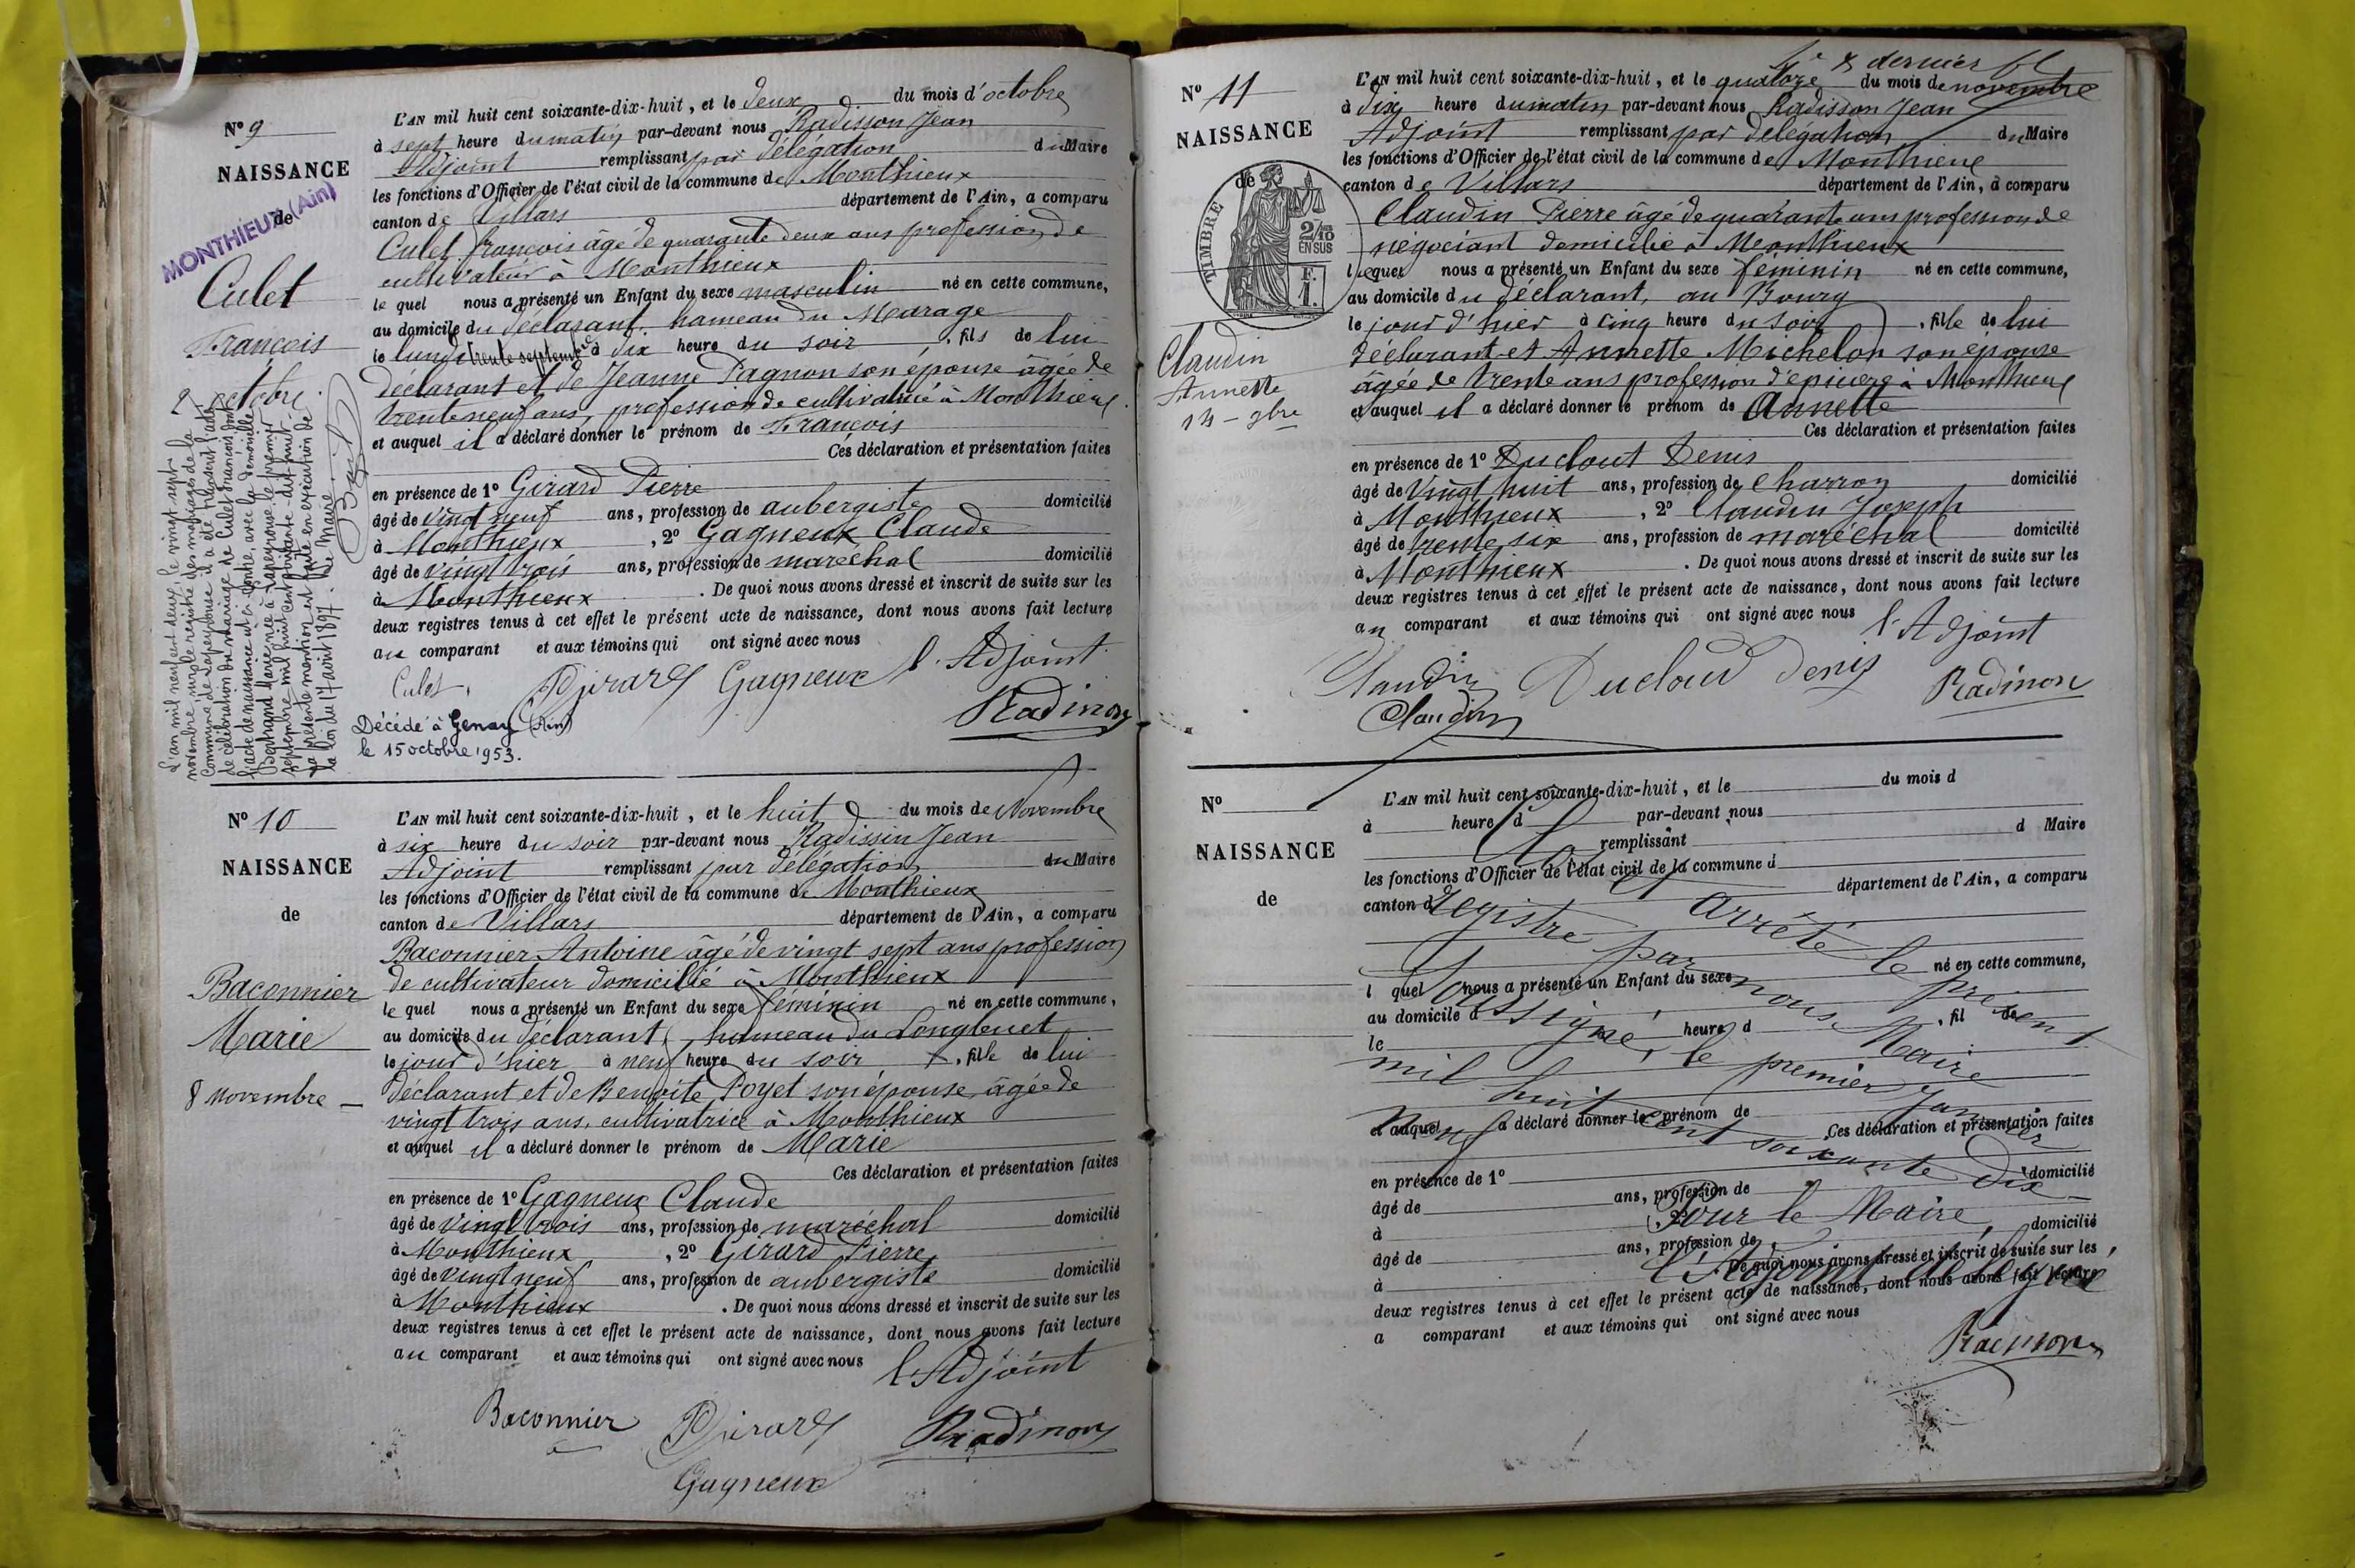 N° 9
NAISSANCE
de
MONTHIEUX (Ain)
Culet
François
2 octobre
L'an mil neuf cent deux, le vingt sept
novembre, sur le registre des mariages de la
commune de Rapeyrouse il a été transcrit l'acte
de célébration du mariage de Culet François dont
l'acte de naissance est ci-contre, avec la demoiselle
Bertrand Marie, née à Lapeyrouse, le premier
septembre mil huit cent quatre-vingt
La présente mention est faite en exécution de
la loi du 17 avril 1897. Le Maire.
L'AN mil huit cent soixante-dix-huit, et le deux du mois d'octobre
à sept heure du matin par-devant nous Radisson Jean
Adjoint remplissant par délégation du Maire
les fonctions d'Officier de l'état civil de la commune de Monthieux
canton de Villars département de l'Ain, a comparu
Culet françois âgé de quarante deux ans profession de
cultivateur à Monthieux
le quel nous a présenté un Enfant du sexe masculin né en cette commune,
au domicile du déclarant, hameau du Marage
le lundi trente septembre à dix heure du soir, fils de lui
déclarant et de Jeanne Pagnon son épouse âgée de
trente neuf ans, profession de cultivatrice à Monthieux
et auquel il a déclaré donner le prénom de François
Ces déclaration et présentation faites
en présence de 1° Girard Pierre
âgé de vingt neuf ans, profession de aubergiste domicilié
à Monthieux, 2° Gagneux Claude
âgé de vingt trois ans, profession de maréchal domicilié
à Monthieux. De quoi nous avons dressé et inscrit de suite sur les
deux registres tenus à cet effet le présent acte de naissance, dont nous avons fait lecture
au comparant et aux témoins qui ont signé avec nous
l'Adjoint
Culet Girard Gagneux
Radisson
Décédé à Genay (Ain)
le 15 octobre 1953.
N° 10
NAISSANCE
de
Baconnier
Marie
8 novembre
L'AN mil huit cent soixante-dix-huit, et le huit du mois de Novembre
à six heure du soir par-devant nous Radissin Jean
Adjoint remplissant par délégation du Maire
les fonctions d'Officier de l'état civil de la commune de Monthieux
canton de Villars département de l'Ain, a comparu
Baconnier Antoine âgé de vingt sept ans profession
de cultivateur domicilié à Monthieux
le quel nous a présenté un Enfant du sexe féminin né en cette commune,
au domicile du déclarant, hameau du Longbenet
le jour d'hier à neuf heure du soir, fille de lui
déclarant et de Benoite Poyet son épouse, âgée de
vingt trois ans, cultivatrice à Monthieux
et auquel il a déclaré donner le prénom de Marie
Ces déclaration et présentation faites
en présence de 1° Gagneux Claude
âgé de vingt trois ans, profession de maréchal domicilié
à Monthieux, 2° Girard Pierre
âgé de vingt neuf ans, profession de aubergiste domicilié
à Monthieux. De quoi nous avons dressé et inscrit de suite sur les
deux registres tenus à cet effet le présent acte de naissance, dont nous avons fait lecture
au comparant et aux témoins qui ont signé avec nous
l'Adjoint
Baconnier Girard Radisson
Gagneux
& dernier fl
N° 11
NAISSANCE
de
TIMBRE
2/10 EN SUS
F. 1.
Claudin
Annette
14 - 9bre
L'AN mil huit cent soixante-dix-huit, et le quatorze du mois de novembre
à dix heure du matin par-devant nous Radisson Jean
Adjoint remplissant par délégation du Maire
les fonctions d'Officier de l'état civil de la commune de Monthieux
canton de Villars département de l'Ain, a comparu
Claudin Pierre âgé de quarante ans profession de
négociant domicilié à Monthieux
lequel nous a présenté un Enfant du sexe féminin né en cette commune,
au domicile du déclarant, au Bourg
le jour d'hier à cinq heure du soir, fille de lui
déclarant et Annette Michelon son épouse
âgée de trente ans profession d'épiciere à Monthieux
et auquel il a déclaré donner le prénom de Annette
Ces déclaration et présentation faites
en présence de 1° Duclout Denis
âgé de vingt huit ans, profession de Charron domicilié
à Monthieux, 2° Claudin Joseph
âgé de trente six ans, profession de maréchal domicilié
à Monthieux. De quoi nous avons dressé et inscrit de suite sur les
deux registres tenus à cet effet le présent acte de naissance, dont nous avons fait lecture
au comparant et aux témoins qui ont signé avec nous
l'Adjoint
Claudin Duclout Denis Radisson
Claudin
N°
NAISSANCE
de
L'AN mil huit cent soixante-dix-huit, et le du mois d
à heure d par-devant nous
remplissant d Maire
les fonctions d'Officier de l'état civil de la commune d
canton d département de l'Ain, a comparu
l quel nous a présenté un Enfant du sexe né en cette commune,
au domicile d
le à heure d, fil de
et auquel a déclaré donner le prénom de
Ces déclaration et présentation faites
en présence de 1°
âgé de ans, profession de domicilié
à, 2°
âgé de ans, profession de domicilié
à. De quoi nous avons dressé et inscrit de suite sur les
deux registres tenus à cet effet le présent acte de naissance, dont nous avons fait lecture
a comparant et aux témoins qui ont signé avec nous
arrêté le présent
Registre par nous Maire
soussigné, le premier Janvier
mil huit cent soixante dix
neuf
Pour le Maire,
l'Adjoint délégué
Radisson